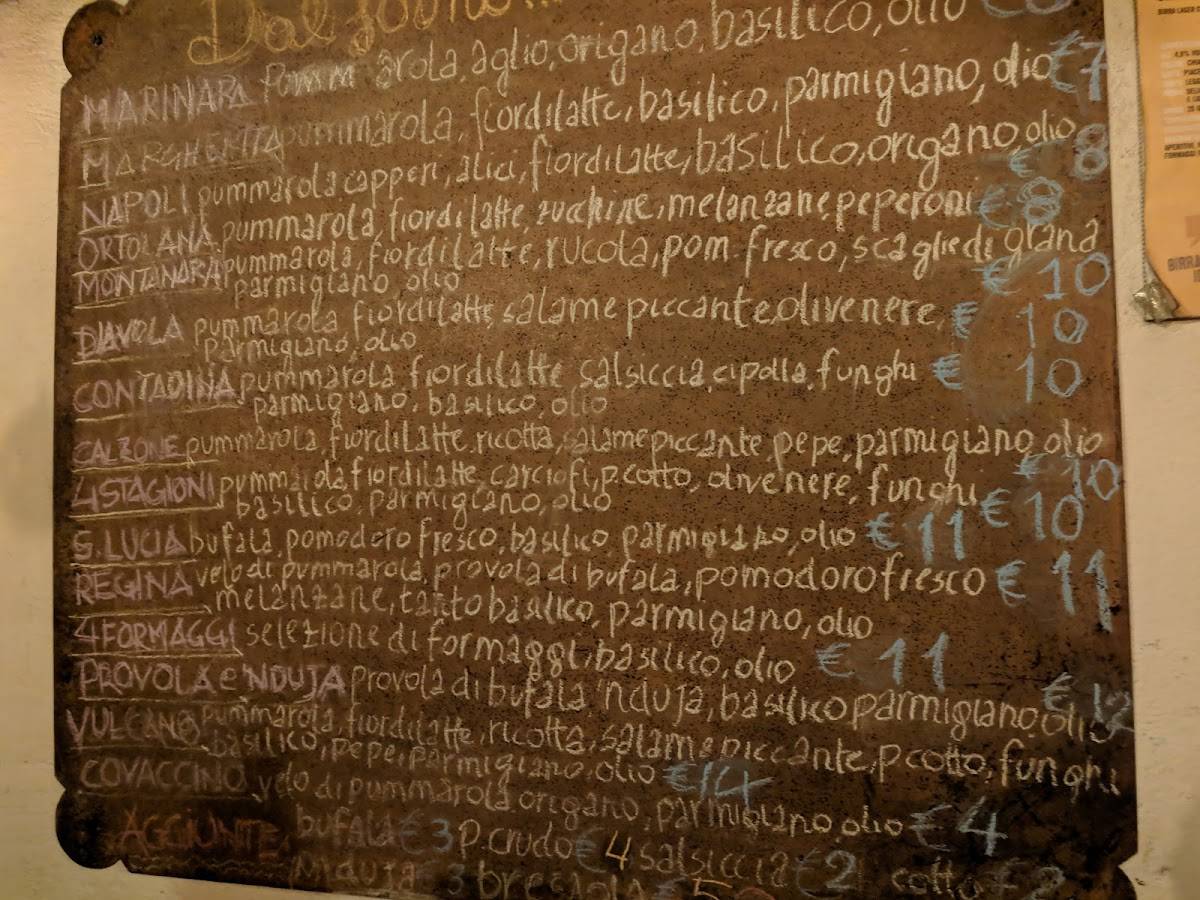 Dal forno...
MARINARA pummarola, aglio, origano, basilico, olio €
MARGHERITA pummarola, fiordilatte, basilico, parmigiano, olio €7
NAPOLI pummarola capperi, alici, fiordilatte, basilico, origano, olio € 8
ORTOLANA pummarola, fiordilatte, zucchine, melanzane, peperoni € 8
MONTANARA pummarola, fiordilatte, rucola, pom. fresco, scaglie di grana
parmigiano olio € 10
DIAVOLA pummarola, fiordilatte, salame piccante, olive nere, € 10
parmigiano, olio
CONTADINA pummarola, fiordilatte, salsiccia, cipolla, funghi € 10
parmigiano, basilico, olio
CALZONE pummarola, fiordilatte, ricotta, salame piccante, pepe, parmigiano, olio € 10
4 STAGIONI pummarola, fiordilatte, carciofi, p. cotto, olive nere, funghi
basilico, parmigiano, olio € 10
S. LUCIA bufala, pomodoro fresco, basilico, parmigiano, olio € 11
REGINA velo di pummarola, provola di bufala, pomodoro fresco € 11
melanzane, tanto basilico, parmigiano, olio
4 FORMAGGI selezione di formaggi, basilico, olio € 11
PROVOLA e 'NDUJA provola di bufala 'nduja, basilico parmigiano, olio € 12
VULCANO pummarola, fiordilatte, ricotta, salame piccante, p. cotto, funghi
basilico, pepe, parmigiano, olio €14
COVACCINO velo di pummarola origano, parmigiano, olio € 4
AGGIUNTE, bufala € 3 P. crudo € 4 salsiccia € 2 cotto €
Nduja € 3 bresaola € 5
BIRRA